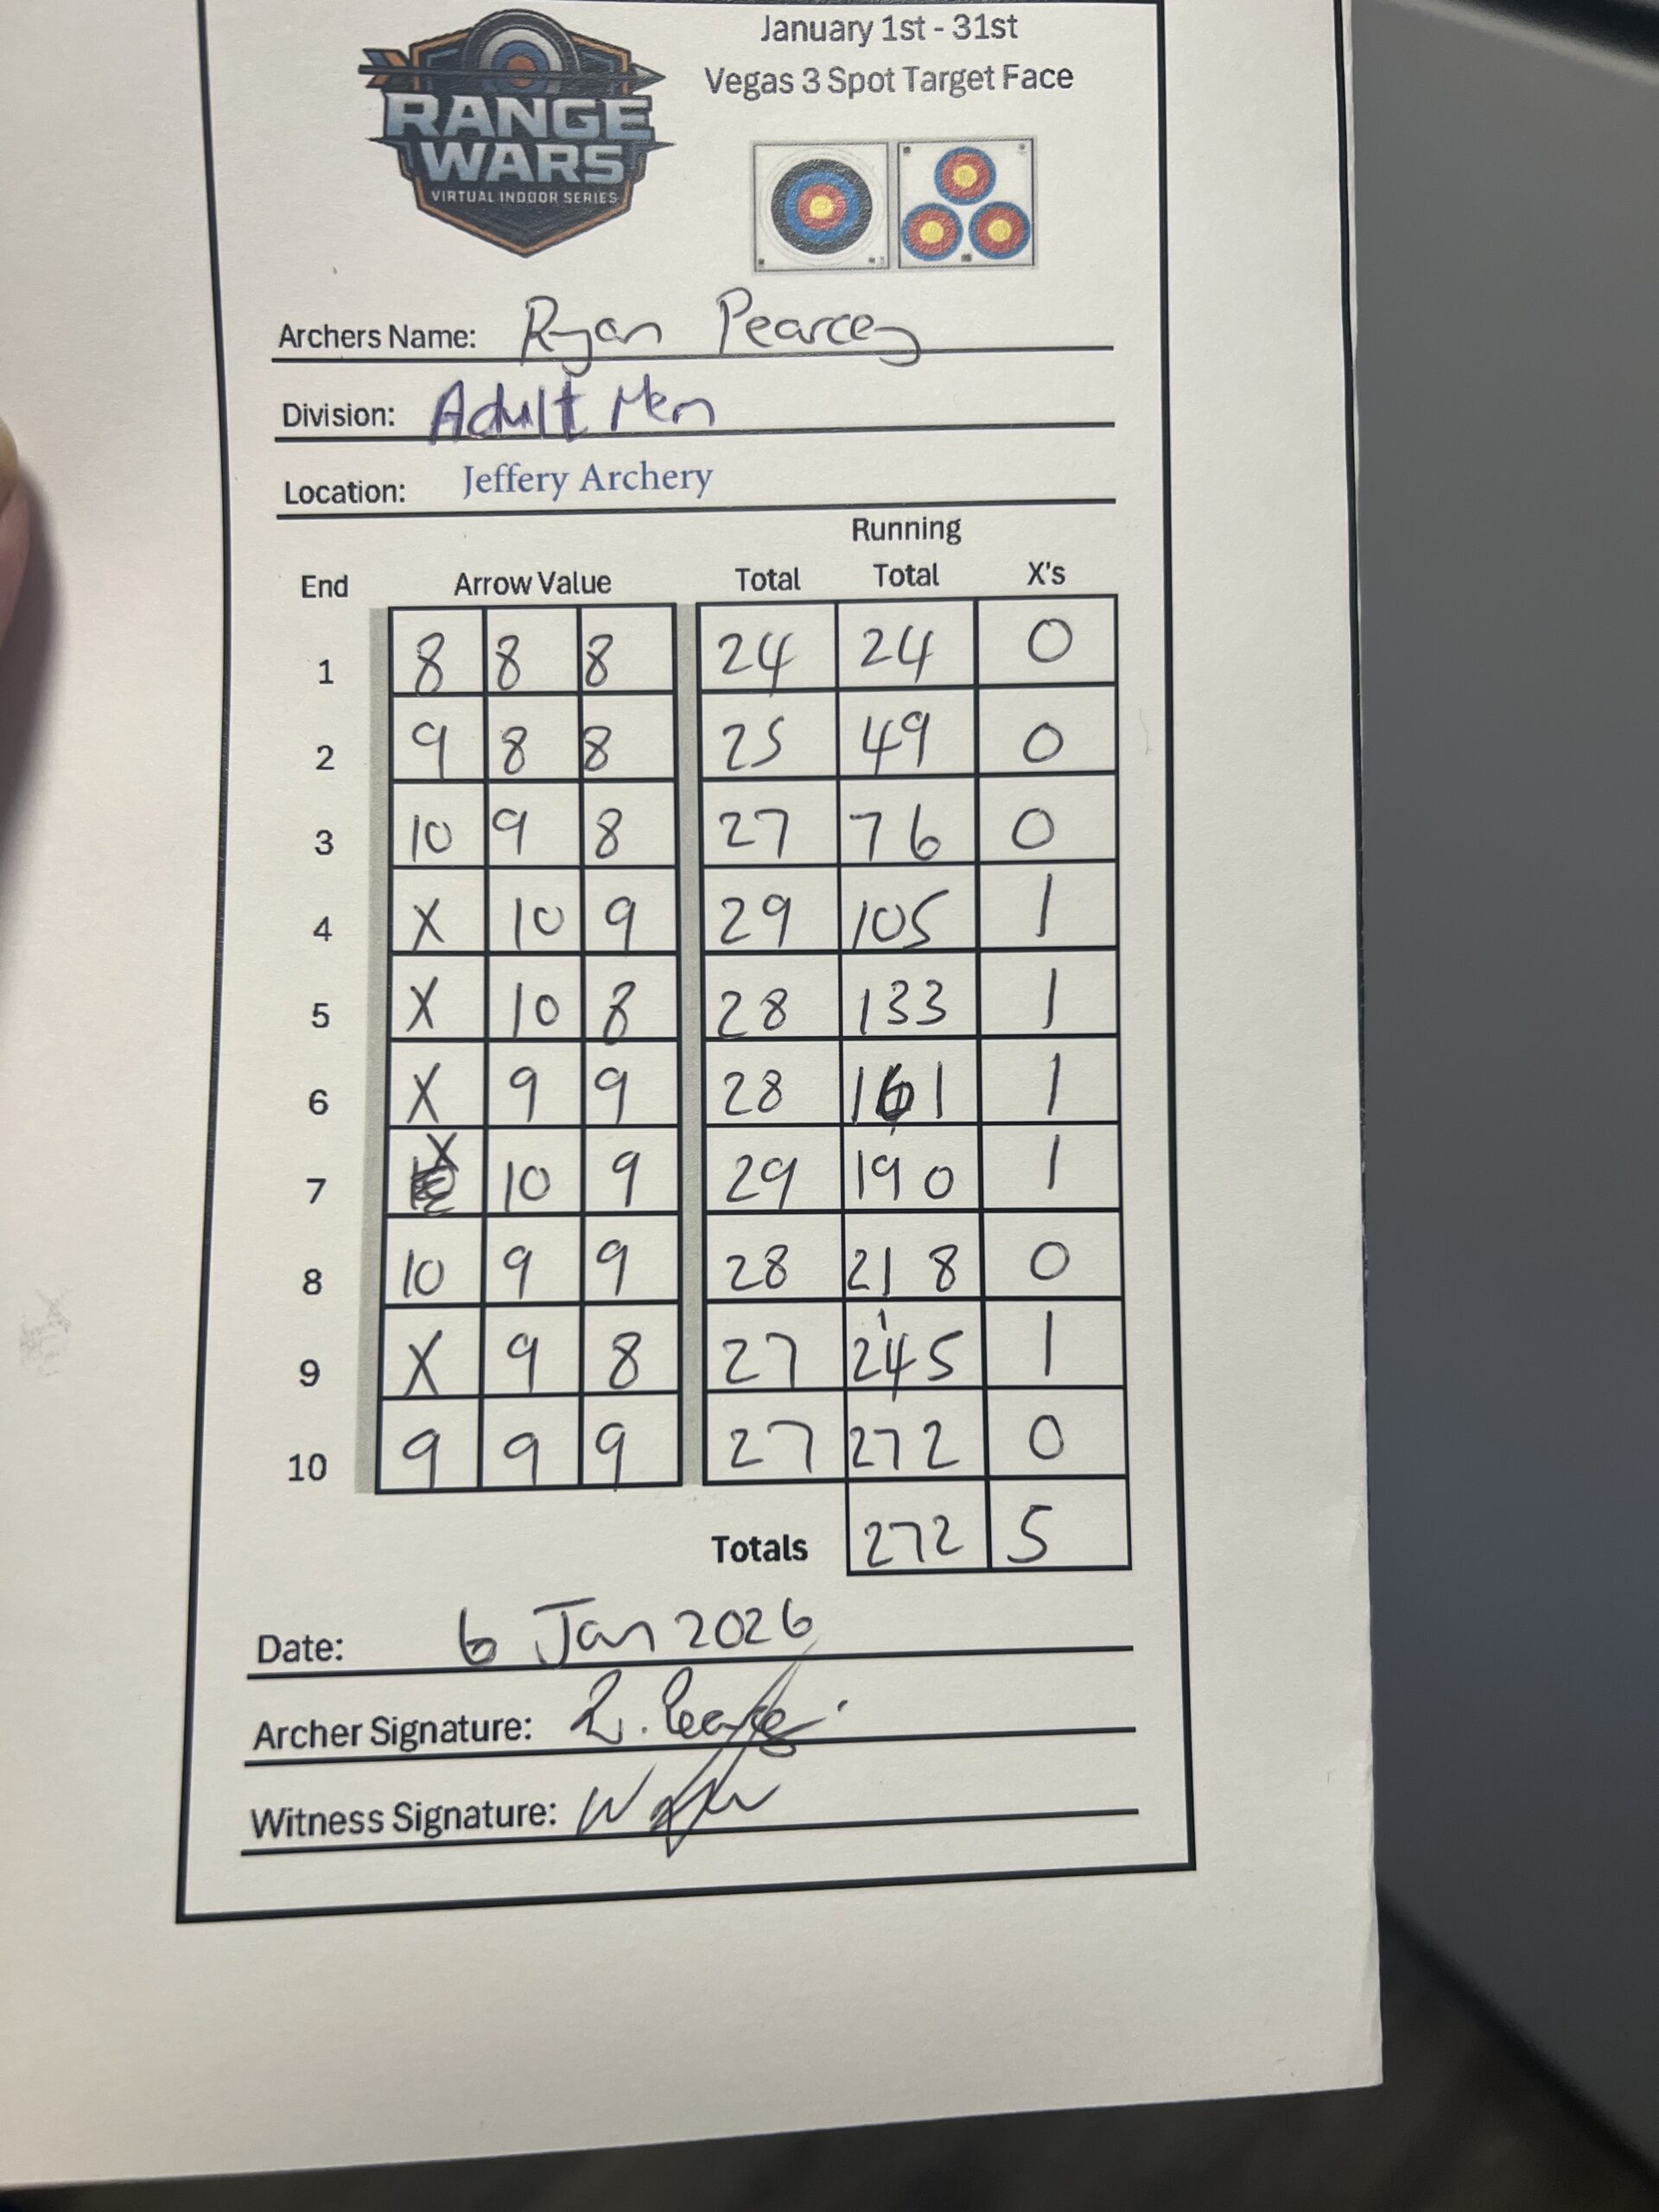 January 1st - 31st
Vegas 3 Spot Target Face
RANGE
WARS
VIRTUAL INDOOR SERIES
Archers Name: Ryan Pearcey
Division: Adult Men
Location: Jeffery Archery
Running
End Arrow Value Total Total X's
1 8 8 8 24 24 0
2 9 8 8 25 49 0
3 10 9 8 27 76 0
4 X 10 9 29 105 1
5 X 10 8 28 133 1
6 X 9 9 28 161 1
7 X 10 9 29 190 1
8 10 9 9 28 218 0
9 X 9 8 27 245 1
10 9 9 9 27 272 0
Totals 272 5
Date: 6 Jan 2026
Archer Signature:
Witness Signature: